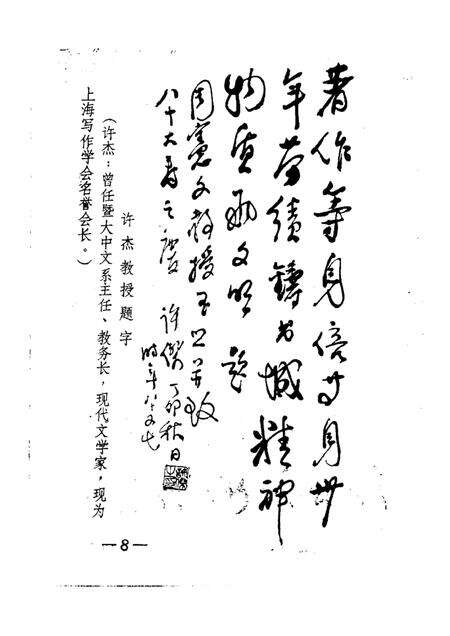 著作等身倍等身卅
年劳绩铸书城精神
物质两文明
周憲文教授
八十大寿之慶 许傑 丁卯秋日
时年八十七
许杰教授题字
（许杰：曾任暨大中文系主任、教务长，现代文学家，现为
上海写作学会名誉会长。）
—8—